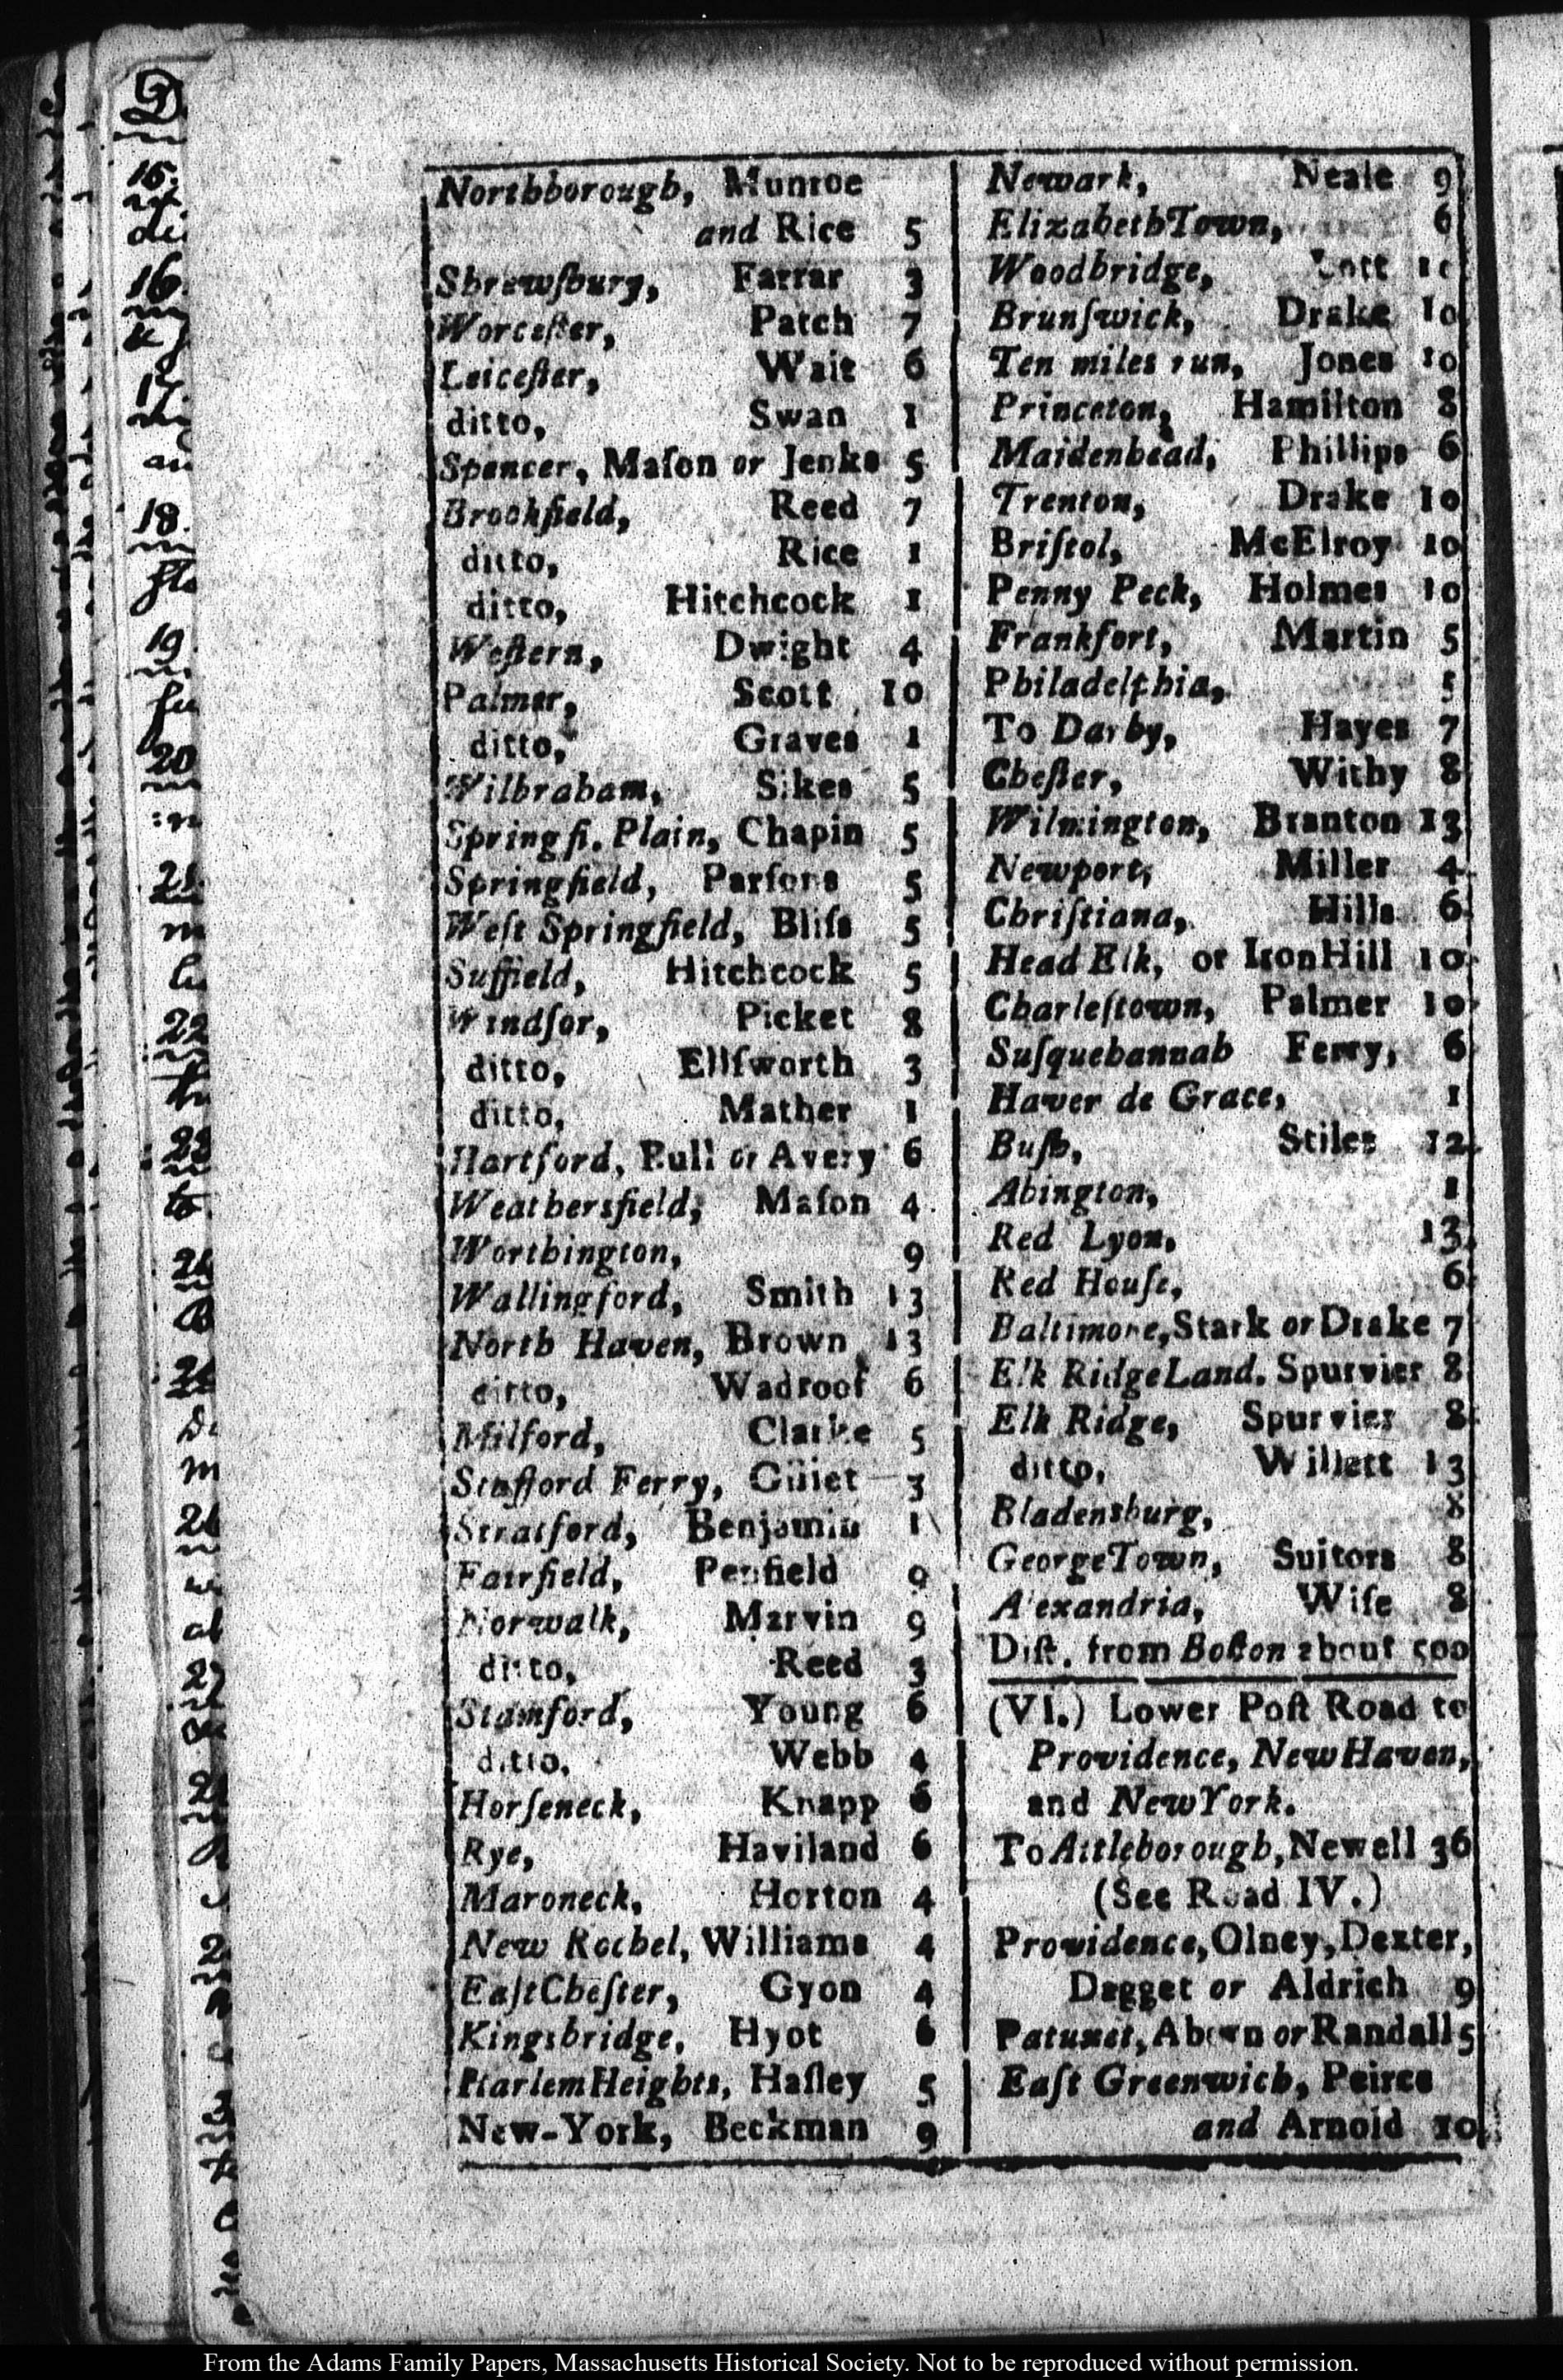 Northborough, Munroe
and Rice 5
Shrewſbury, Farrar 3
Worceſter, Patch 7
Leiceſter, Wait 6
ditto, Swan 1
Spencer, Maſon or Jenks 5
Brookfield, Reed 7
ditto, Rice 1
ditto, Hitchcock 1
Weſtern, Dwight 4
Palmer, Scott 10
ditto, Graves 1
Wilbraham, Sikes 5
Springfi. Plain, Chapin 5
Springfield, Parſons 5
Weſt Springfield, Bliſs 5
Suffield, Hitchcock 5
Windſor, Picket 8
ditto, Ellſworth 3
ditto, Mather 1
Hartford, Bull or Avery 6
Weathersfield, Maſon 4
Worthington, 9
Wallingford, Smith 13
North Haven, Brown 13
ditto, Wadroof 6
Milford, Clarke 5
Stafford Ferry, Gillet 3
Stratford, Benjamin 1
Fairfield, Penfield 9
Norwalk, Marvin 9
ditto, Reed 3
Stamford, Young 6
ditto, Webb 4
Horſeneck, Knapp 6
Rye, Haviland 6
Maroneck, Horton 4
New Rochel, Williams 4
Eaſt Cheſter, Gyon 4
Kingsbridge, Hyot 6
Harlem Heights, Haſley 5
New-York, Beckman 9
Newark, Neale 9
Elizabeth Town, 6
Woodbridge,
Brunſwick, Drake 10
Ten miles run, Jones 10
Princeton, Hamilton 8
Maidenhead, Phillips 6
Trenton, Drake 10
Briſtol, McElroy 10
Penny Peck, Holmes 10
Frankfort, Martin 5
Philadelphia, 5
To Darby, Hayes 7
Cheſter, Withy 8
Wilmington, Branton 13
Newport, Miller 4
Chriſtiana, Hills 6
Head Elk, or Iron Hill 10
Charleſtown, Palmer 10
Suſquehannah Ferry, 6
Haver de Grace, 1
Buſh, Stiles 12
Abington, 1
Red Lyon, 13
Red Houſe, 6
Baltimore, Stark or Drake 7
Elk Ridge Land. Spurvier 8
Elk Ridge, Spurvier 8
ditto, Willett 13
Bladensburg, 8
George Town, Suitors 8
Alexandria, Wiſe 8
Diſt. from Boſton about 500
(VI.) Lower Poſt Road to
Providence, New Haven,
and New York.
To Attleborough, Newell 36
(See Road IV.)
Providence, Olney, Dexter,
Dagget or Aldrich 9
Patuxet, Abown or Randall 5
Eaſt Greenwich, Peirce
and Arnold 10
15
16
17
18
19
20
From the Adams Family Papers, Massachusetts Historical Society. Not to be reproduced without permission.